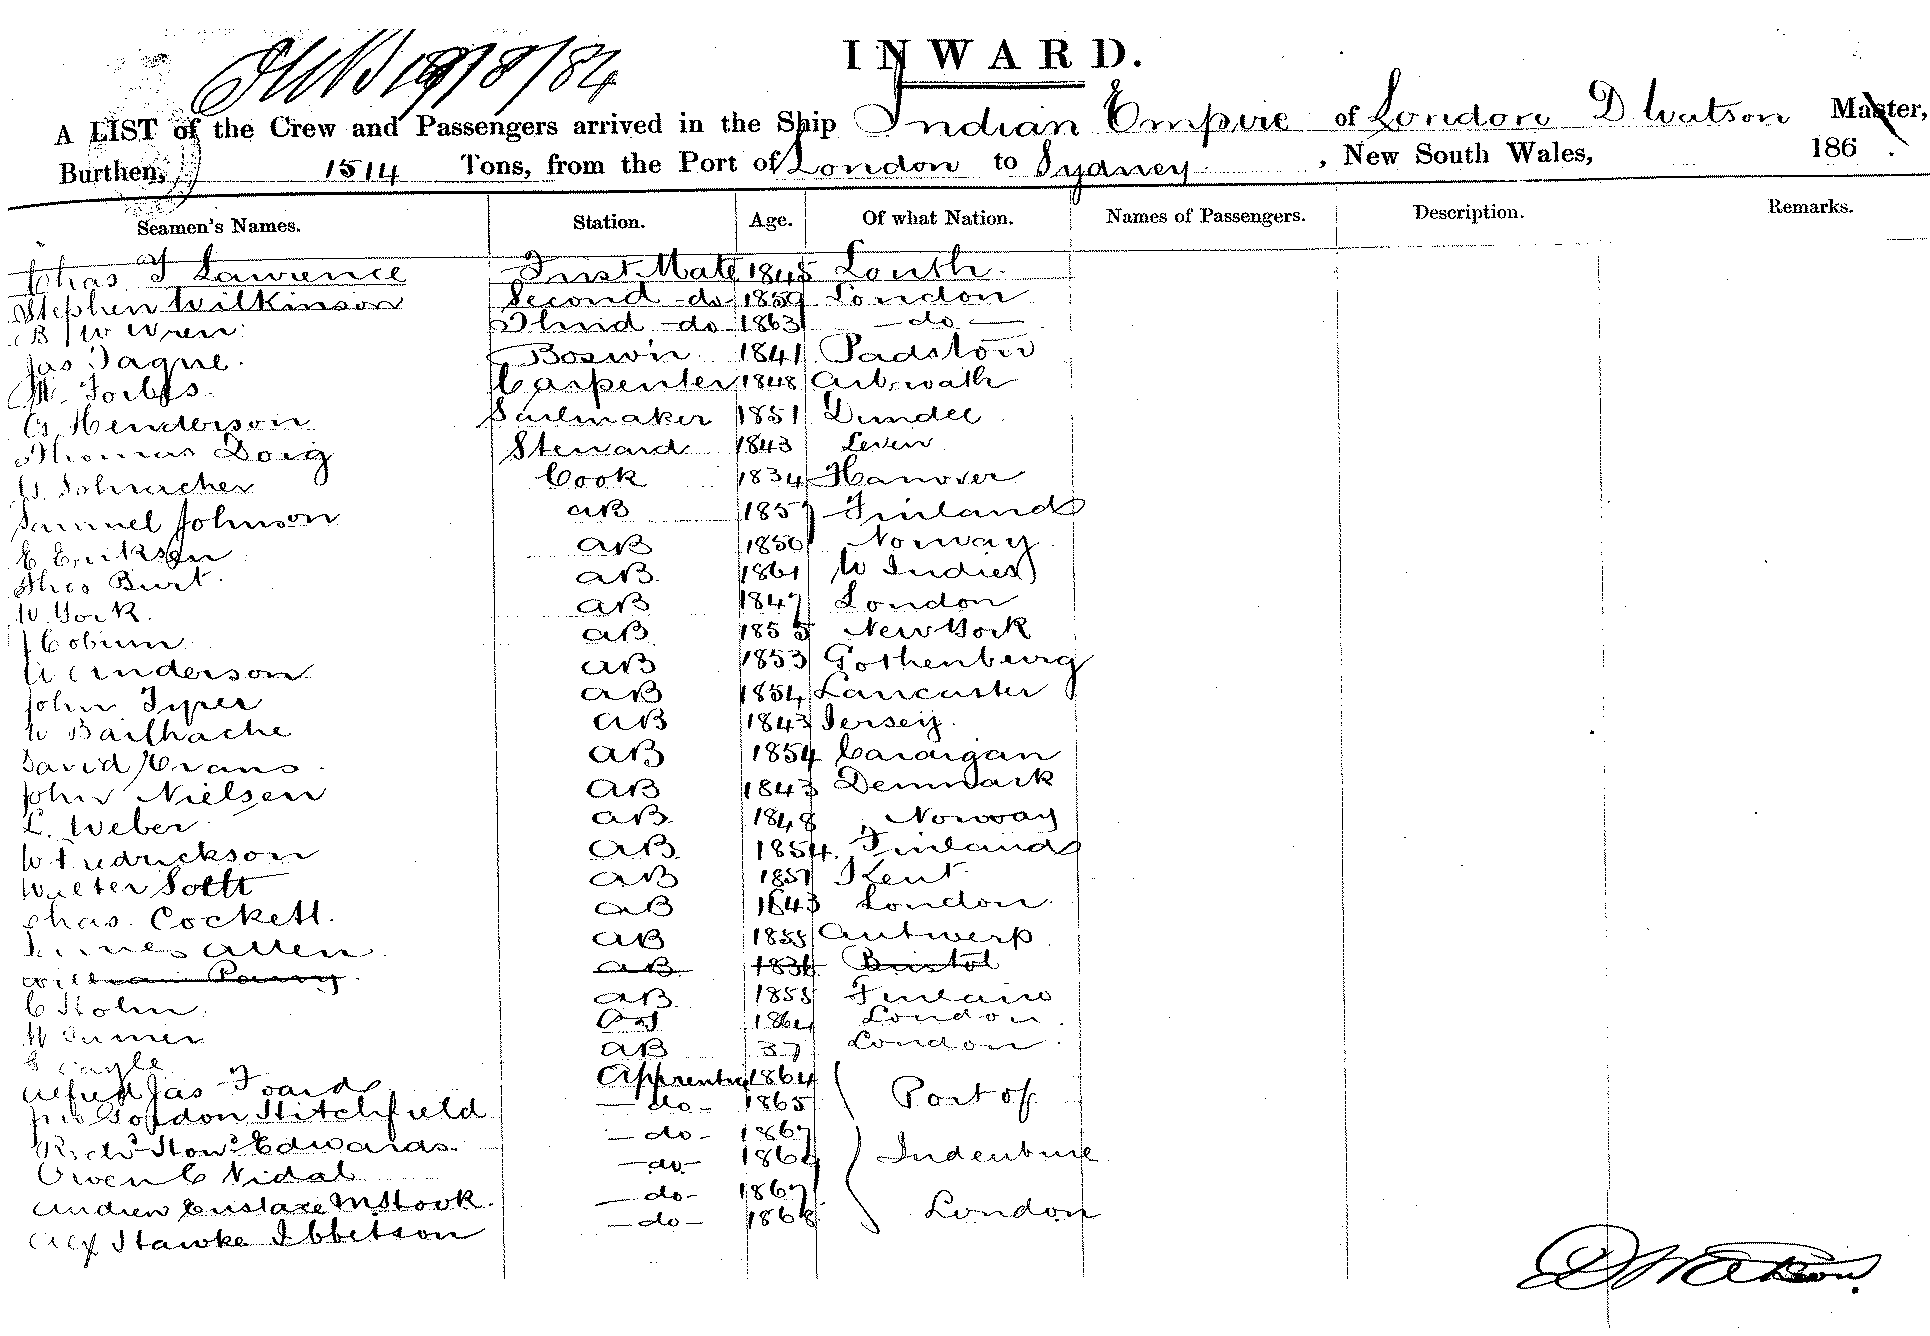 19/8/84
INWARD.
A LIST of the Crew and Passengers arrived in the Ship Indian Empire of London D Watson Master,
Burthen, 1514 Tons, from the Port of London to Sydney, New South Wales, 186 .
Seamen's Names. Station. Age. Of what Nation. Names of Passengers. Description. Remarks.
Chas T Lawrence First Mate 1845 Louth
Stephen Wilkinson Second do 1859 London
B W Wren Third do 1863 do
Jas Tague Boswn 1841 Padstow
Forbes Carpenter 1848 Arbroath
G Henderson Sailmaker 1851 Dundee
Thomas Doig Steward 1843 Leven
Cook 1834 Hanover
Samuel Johnson AB 1857 Finland
E Eriksen AB 1850 Norway
Theo Burt AB 1861 W Indies
W York AB 1847 London
J Coburn AB 1855 New York
Anderson AB 1853 Gothenburg
John Tyrer AB 1854 Lancaster
W Bailhache AB 1843 Jersey
David Evans AB 1854 Cardigan
John Nielsen AB 1843 Denmark
L. Weber AB 1848 Norway
W Fredrickson AB 1854 Finland
Walter Scott AB 1851 Kent
Chas. Cockett AB 1843 London
James Allen AB 1855 Antwerp
William Parry AB 1836 Bristol
C Holm AB 1855 Finland
W Turner OS 1864 London
AB 37 London
Alfred Jas Foard Apprentice 1864 Port of
Jno Gordon Hitchfield do 1865
Richd Howd Edwards do 1867
Owen C Vidal do 186 Indenture
Andrew Eustace McHook do 1867
Alex Hawke Ibbetson do 1868 London
D Watson